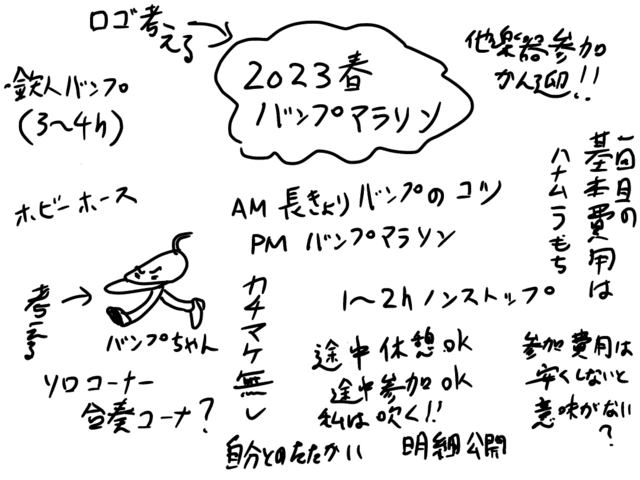 ロゴ考える
2023春
バンプマラソン
他楽器参加
かん迎!!
鉄人バンプ
(3〜4h)
一回目の
基本費用は
ハナムラもち
ホビーホース
AM 長きょりバンプのコツ
PM バンプマラソン
1〜2h ノンストップ
考える
バンプちゃん
カチマケ無し
途中休憩OK
途中参加OK
私は吹く!!
参加費用は
安くしないと
意味がない
?
ソロコーナー
合奏コーナ?
自分とのたたかい
明細公開